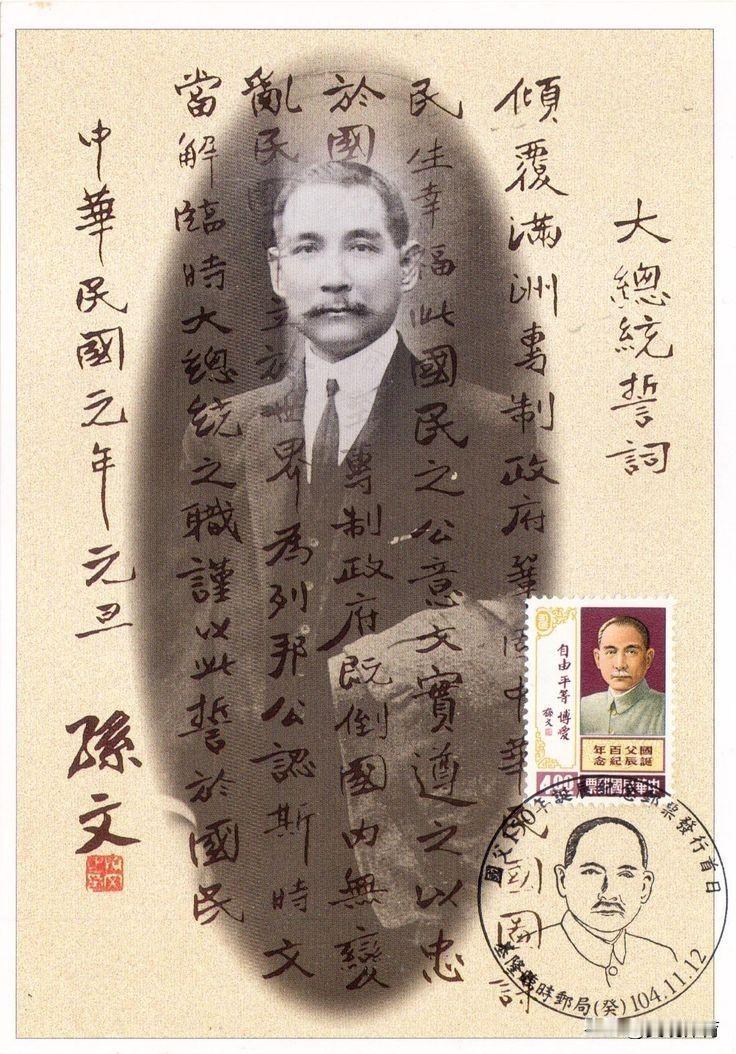 大總統誓詞
傾覆滿洲專制政府鞏固中華民國圖謀
民生幸福此國民之公意文實遵之以忠
於國專制政府既倒國內無變
亂民國立於世界為列邦公認斯時文
當解臨時大總統之職謹以此誓於國民
中華民國元年元旦
孫文
自由 平等 博愛
孫文
國父百年
誕辰紀念
中華民國郵票
4.00
國父150年誕辰紀念郵票發行首日
基隆臨時郵局(癸)104.11.12